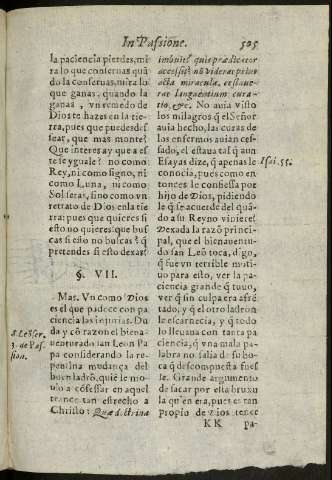 In Passione.
505
la paciencia pierdes, mi
ra lo que conseruas quã
do la conseruas, mira lo
que ganas, quando la
ganas, vn remedo de
Dios te hazes en la tie-
rra, pues que puerdes
sear, que mas monte?
Que interes ay que a es
te se yguale? no como
Rey, ni como signo, ni
como Luna, ni como
Sol seras, sino como vn
retrato de Dios en la tie
rra: pues que quieres si
esto no quieres? que bus
cas si esto no buscas? q̃
pretendes si esto dexas?
§. VII.
Mas. Vn como Dios
es el que padece con pa
ciencia las injurias. Du
da y cõ razon el biena-
uenturado san Leon Pa
pa considerando la re-
pentina mudança del
buen ladrõ, quiẽ le mo-
uio a cõfessar en aquel
trance tan estrecho a
Christo: Quæ doctrina
S. Leõ ser.
3. de Pas
sion.
imbuit? quis prædicator
accessit? nõ viderat prius
acta miracula, cessaue-
rat languentium cura-
tio, &c. No auia visto
los milagros q̃ el Señor
auia hecho, las curas de
los enfermos auian ces-
sado, el estaua tal q̃ aun
Esayas dize, q̃ apenas le
conocia, pues como en-
tonces le confiessa por
hijo de Dios, pidiendo
le q̃ se acuerde del quã-
do a su Reyno viniere?
Dexada la razõ princi-
pal, que el bienauentu-
do san Leõ toca, digo,
q̃ fue vn terrible moti
uo para esto, ver la pa-
ciencia grande q̃ tuuo,
ver q̃ sin culpa era afrẽ
tado, y q̃ el otro ladron
le escarnecia, y q̃ todo
lo lleuaua con tanta pa
ciencia, q̃ vna mala pa-
labra no salia de su bo-
ca q̃ descompuesta fues
se. Grande argumento
de sacar por esta bruxu
la qu'en era, pues es tan
propio de Dios tener
Isai. 55.
KK
pa-